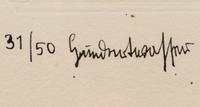 31/50 Hundertwasser